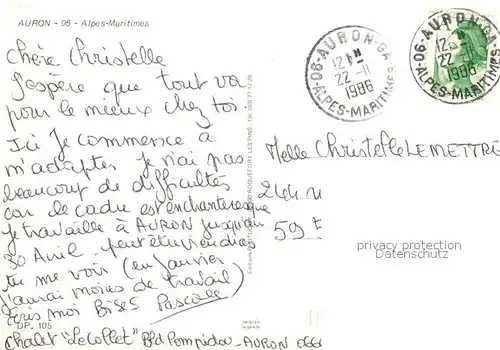 AURON - 06 - Alpes-Maritimes
Chère Christelle
J'espère que tout va
pour le mieux chez toi.
Ici Je commence à
m'adapter je n'ai pas
beaucoup de difficultés
car le cadre est enchanteresque
Je travaille à AURON jusqu'au
30 Avril. peut être viendras
tu me voir (en Janvier
j'aurai moins de travail)
écris moi Bises Pascale
DP. 105
Chalet "Le Collet" Bld Pompidou - AURON 06660
06-AURON-GA
12H
22-11
1986
ALPES-MARITIMES
06-AURON-GA
12H
22-11
1986
ALPES-MARITIMES
Melle Christelle LEMETTRE
244
59
privacy protection
Datenschutz